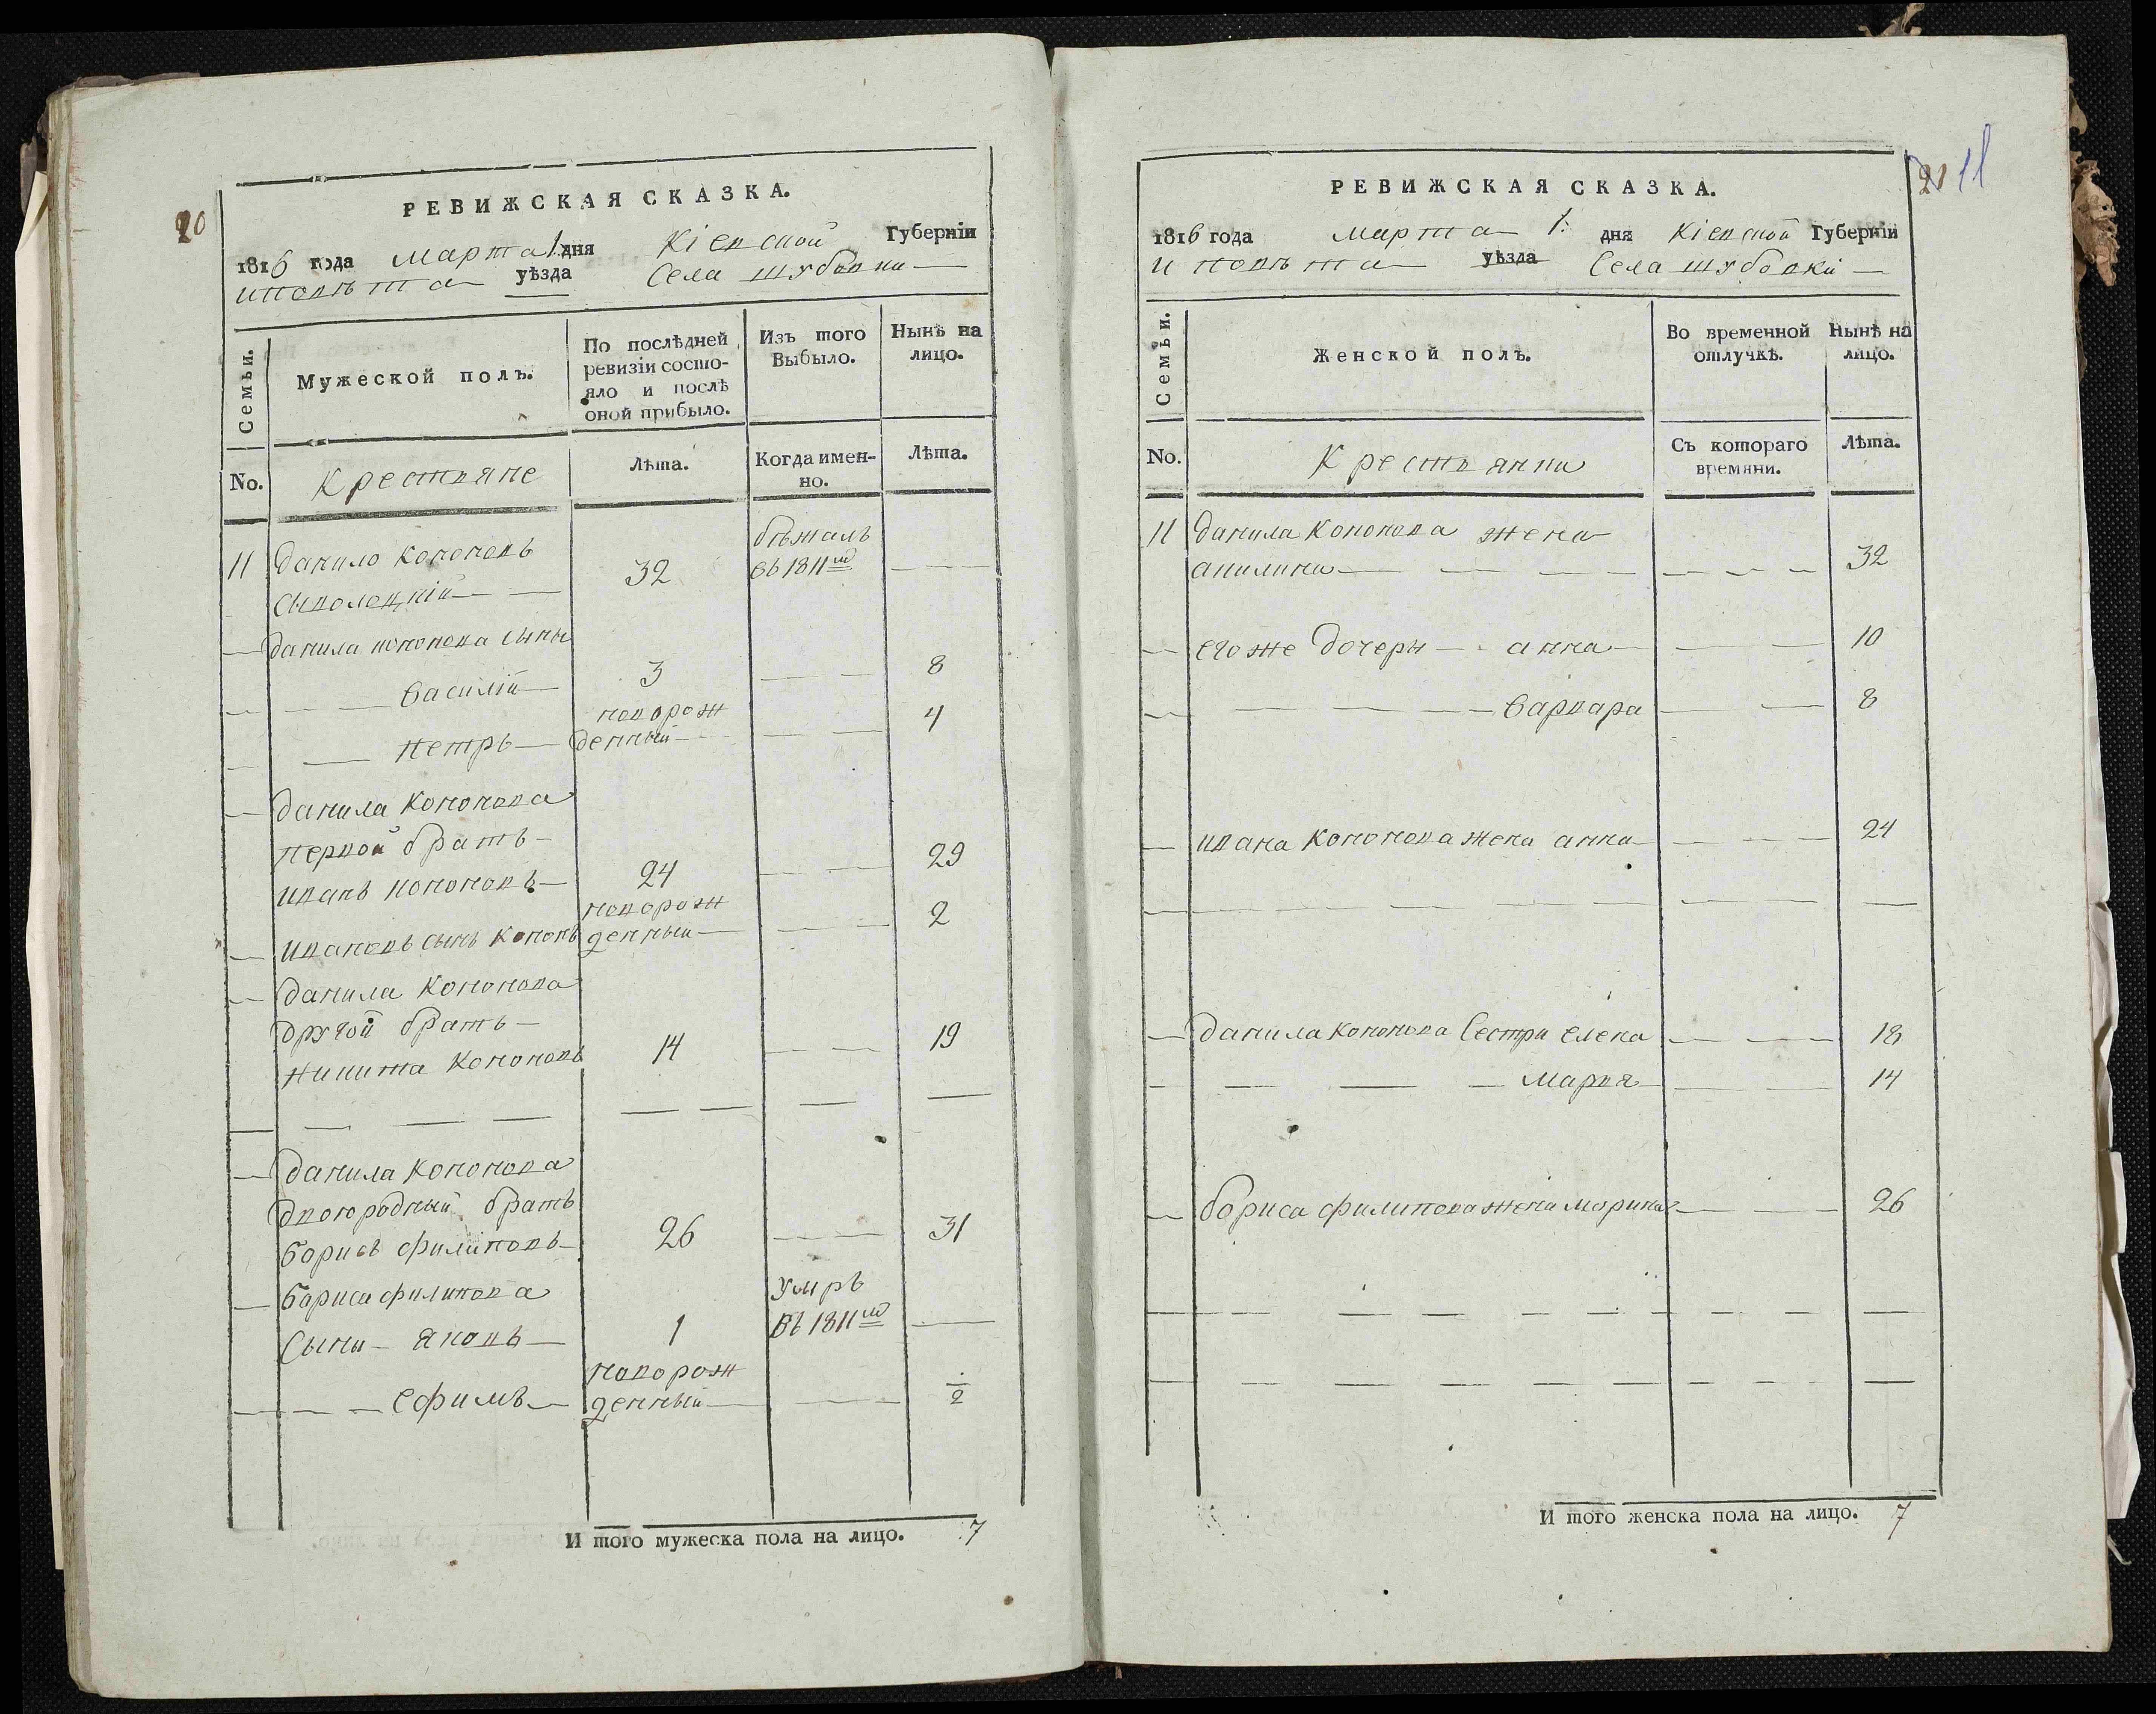 20
РЕВИЖСКАЯ СКАЗКА.
1816 года марта 1 дня Кіевской Губерніи
и повѣта уѣзда Села шубовки
Семьи.
Мужеской полъ.
По послѣдней ревизіи состо-
яло и послѣ
оной прибыло.
Изъ того
Выбыло.
Нынѣ на
лицо.
No.
Крестьяне
Лѣта.
Когда имен-
но.
Лѣта.
бѣжалъ
11 данило кононовъ 32 въ 1811м
данила кононова сыны
василій 3 8
новорож
петръ денный 4
данила кононова
первой братъ
иванъ кононовъ 24 29
новорож
ивановъ сынъ кононъ денный 2
данила кононова
другой братъ
никита кононовъ 14 19
данила кононова
двоюродный братъ
борисъ филиповъ 26 31
бориса филипова умръ
сыны яковъ 1 въ 1811м
новорож
ефимъ денный 2
И того мужеска пола на лицо. 7
20 11
РЕВИЖСКАЯ СКАЗКА.
1816 года марта 1: дня Кіевской Губерніи
и повѣта уѣзда Села шубовки
Семьи.
Женской полъ.
Во временной
отлучкѣ.
Нынѣ на
лицо.
No.
Крестьянки
Съ котораго
времяни.
Лѣта.
11 данила кононова жена
акилина 32
его же дочеры анна 10
варвара 8
ивана кононова жена анна 24
данила кононова сестри елена 18
марья 14
бориса филипова жена марина 26
И того женска пола на лицо. 7